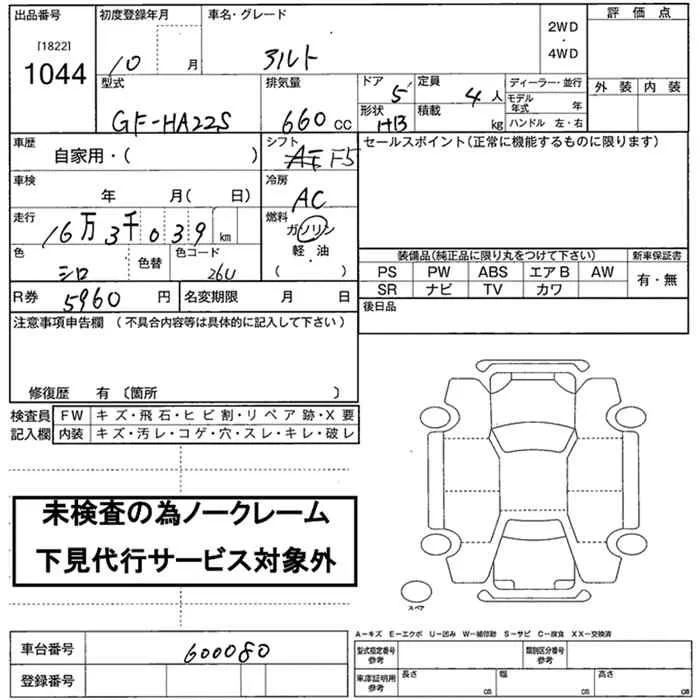 出品番号 初度登録年月 車名・グレード 評価点
[1822] 2WD
1044 10 月 アルト ・ 4WD
外装 内装
型式 排気量 ドア 5 定員 4人 ディーラー・並行
モデル年式 年
GF-HA22S 660 cc 形状 HB 積載 kg ハンドル 左・右
車歴 自家用・( ) シフト F5 セールスポイント(正常に機能するものに限ります)
車検 年 月( 日) 冷房 AC
走行 16万3千039 km 燃料 ガソリン
軽・油
( )
色 シロ 色替 色コード 26U
装備品(純正品に限り丸をつけて下さい) 新車保証書
PS PW ABS エアB AW 有・無
SR ナビ TV カワ
R券 5960 円 名変期限 月 日 後日品
注意事項申告欄 (不具合内容等は具体的に記入して下さい)
修復歴 有〔箇所 〕
検査員 FW キズ・飛石・ヒビ割・リペア跡・X要
記入欄 内装 キズ・汚レ・コゲ・穴・スレ・キレ・破レ
未検査の為ノークレーム
下見代行サービス対象外
スペア
A−キズ E−エクボ U−凹み W−補修跡 S−サビ C−腐食 XX−交換済
車台番号 600080 型式指定番号 参考 類別区分番号 参考
登録番号 車庫証明用 参考 長さ cm 幅 cm 高さ cm